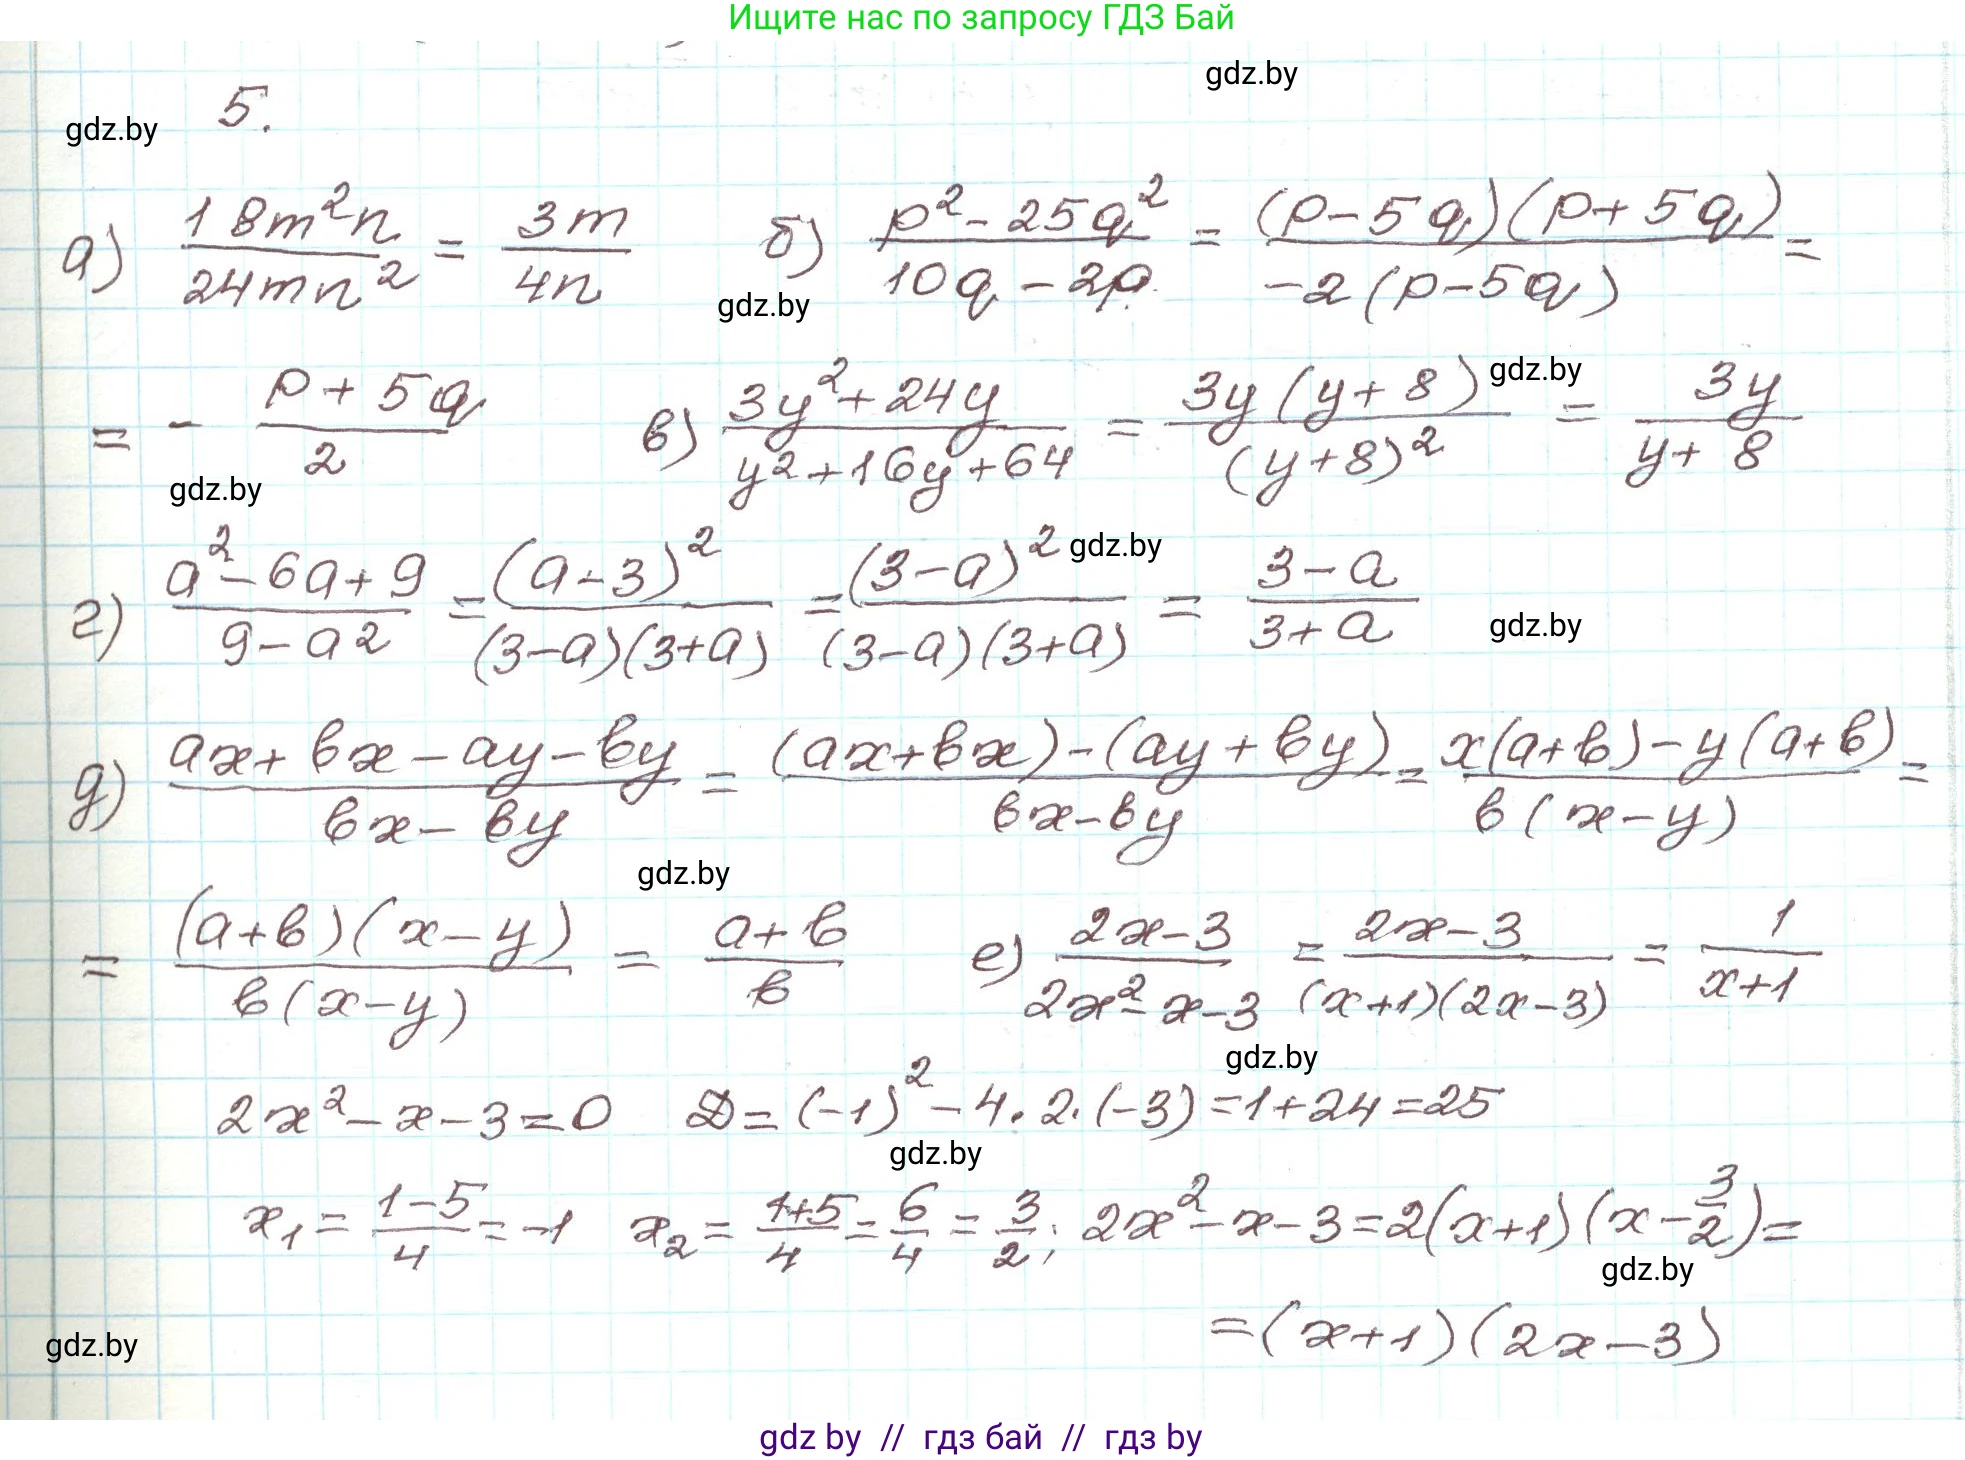 Ищите нас по запросу ГДЗ Бай
gdz.by
5.
gdz.by
а) 18m²n/24mn² = 3m/4n б) p²-25q²/10q-2p = (p-5q)(p+5q)/-2(p-5q) =
gdz.by
= - p+5q/2 в) 3y²+24y/y²+16y+64 = 3y(y+8)/(y+8)² = 3y/y+8
gdz.by
gdz.by
г) a²-6a+9/9-a² = (a-3)²/(3-a)(3+a) = (3-a)²/(3-a)(3+a) = 3-a/3+a
gdz.by
gdz.by
д) ax+bx-ay-by/bx-by = (ax+bx)-(ay+by)/bx-by = x(a+b)-y(a+b)/b(x-y) =
gdz.by
= (a+b)(x-y)/b(x-y) = a+b/b е) 2x-3/2x²-x-3 = 2x-3/(x+1)(2x-3) = 1/x+1
gdz.by
2x²-x-3=0 D=(-1)²-4·2·(-3)=1+24=25
gdz.by
x₁=1-5/4=-1 x₂=1+5/4=6/4=3/2; 2x²-x-3=2(x+1)(x-3/2)=
gdz.by
=(x+1)(2x-3)
gdz.by
gdz by // гдз бай // гдз by